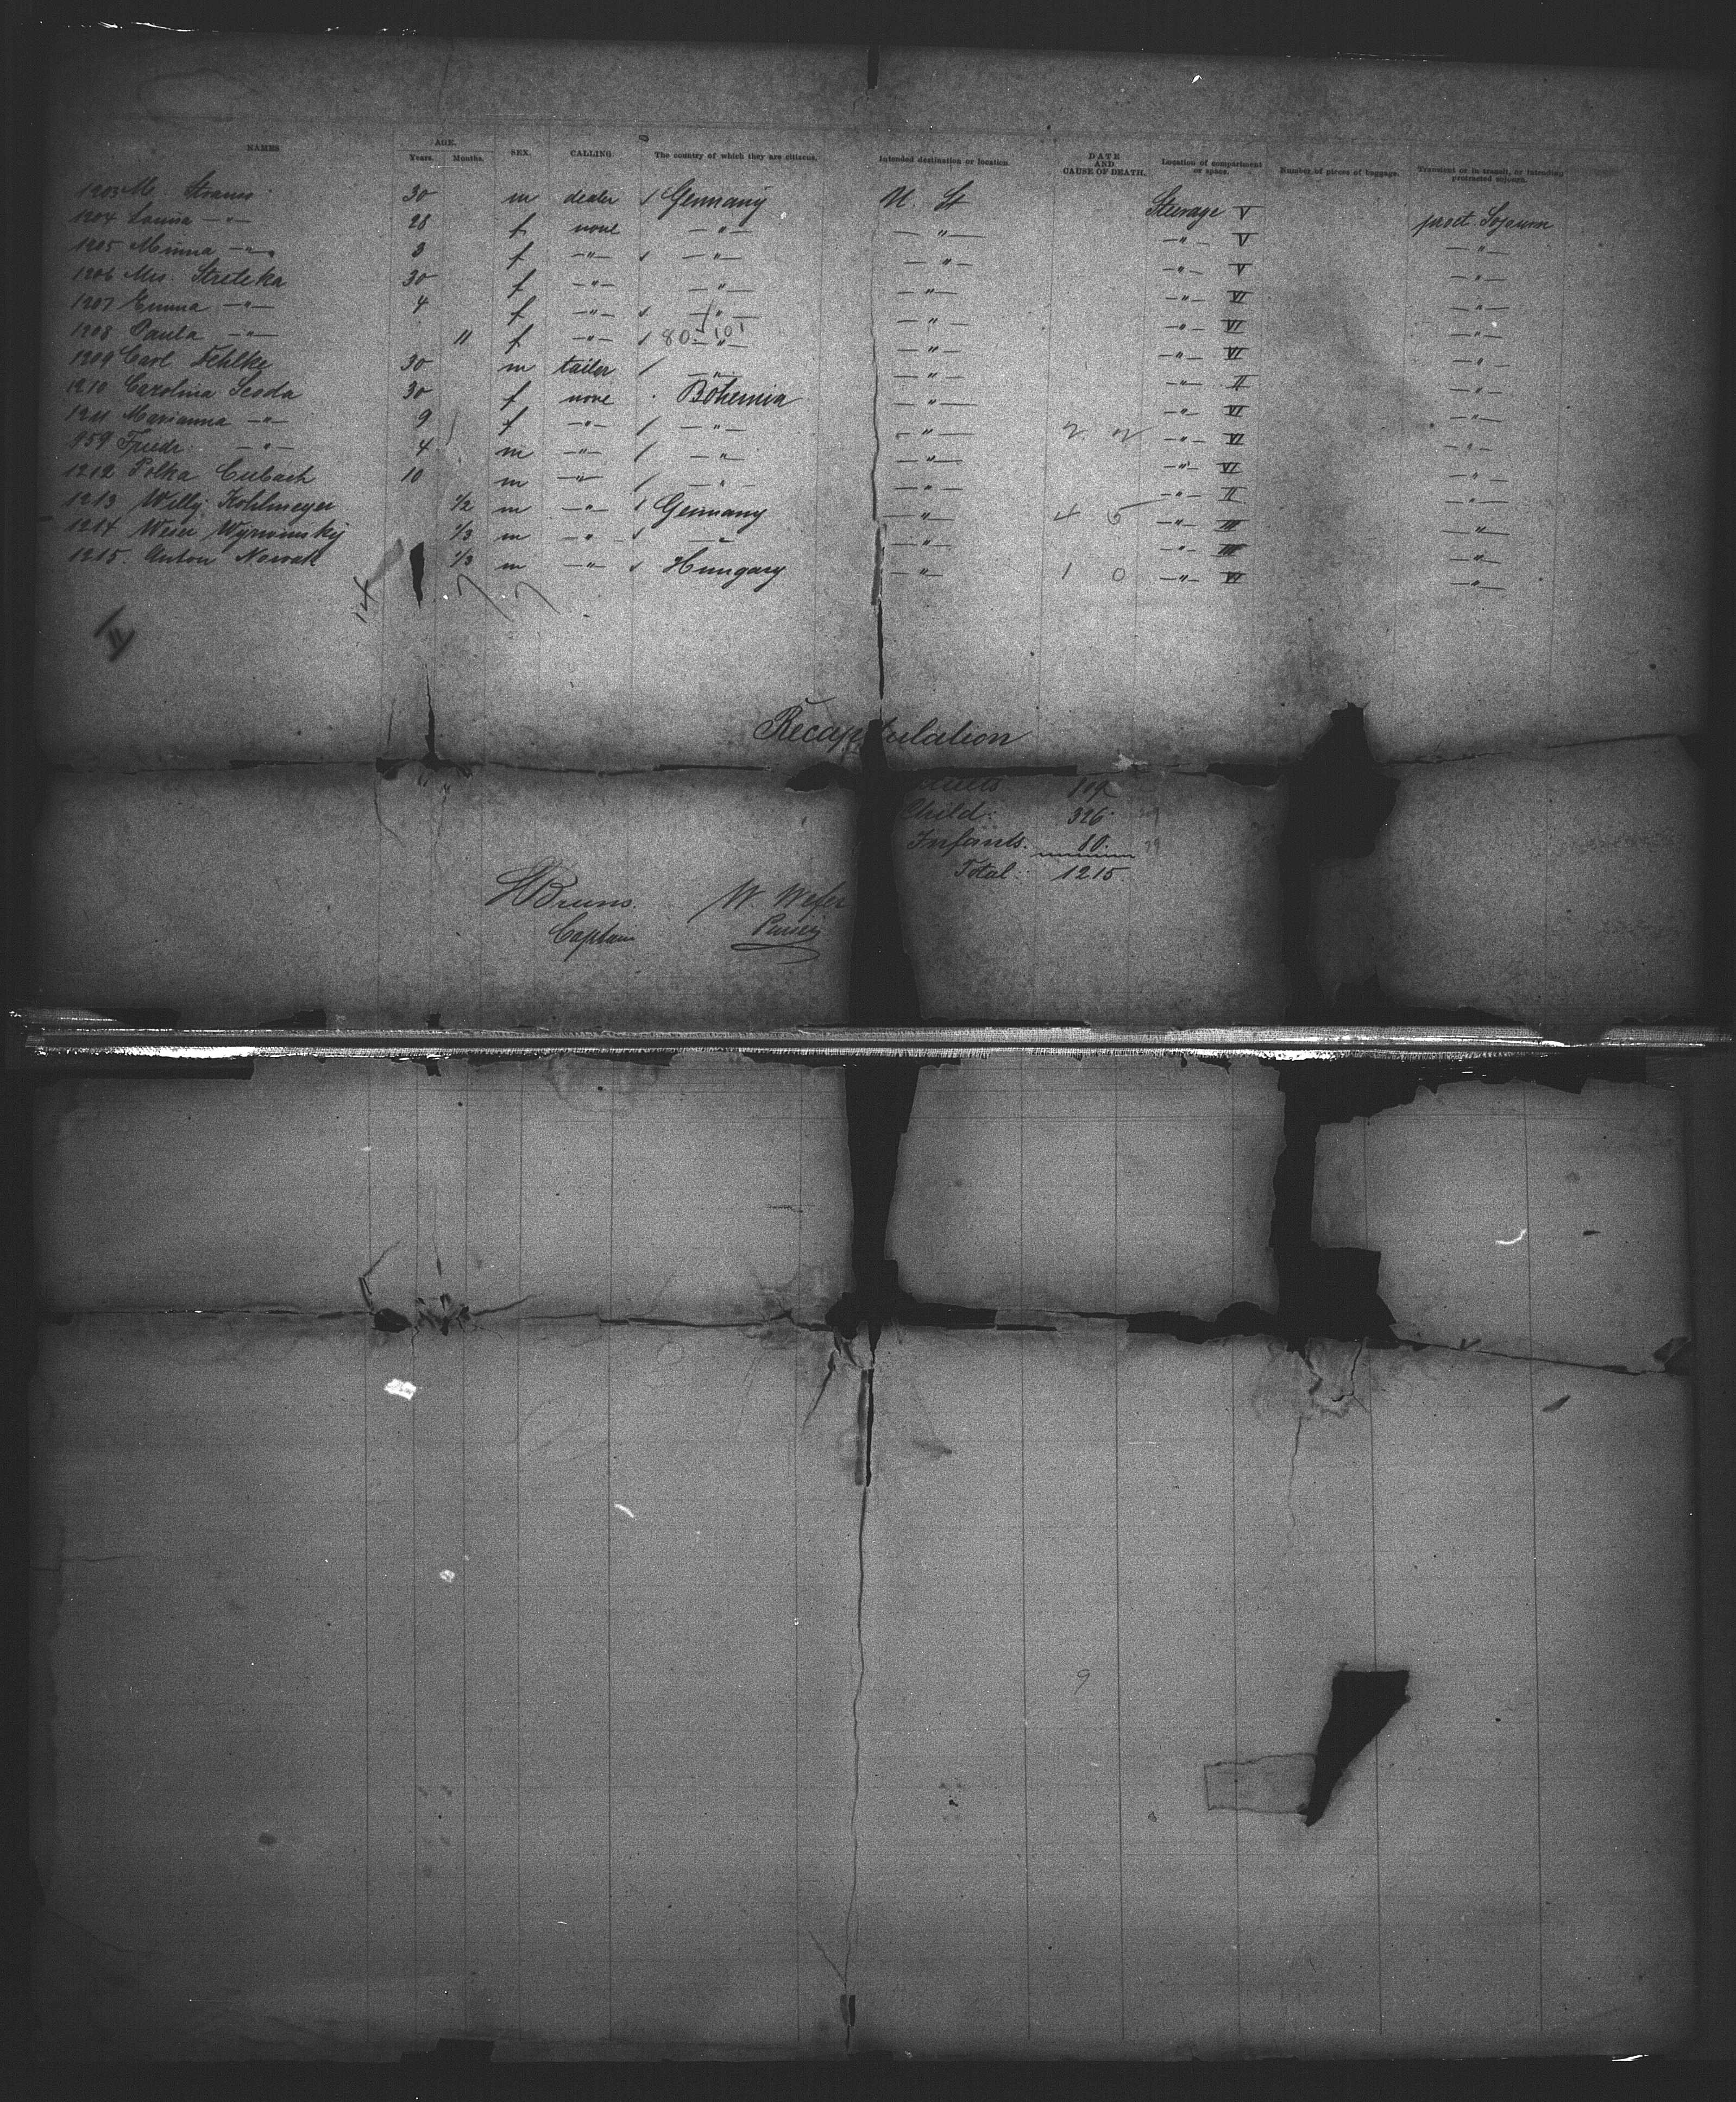 NAMES AGE. Years. Months. SEX. CALLING. The country of which they are citizens. Intended destination or location. DATE AND CAUSE OF DEATH. Location of compartment or space. Number of pieces of baggage. Transient or in transit, or intending protracted sojourn.
1203 M. Strauss 30 m dealer / Germany U. St Steerage V prot. Sojourn
1204 Louisa -"- 28 f none -"- -"- -"- V -"-
1205 Minna -"- 3 f -"- / -"- -"- -"- V -"-
1206 Mrs. Streteka 30 f -"- -"- -"- -"- VI -"-
1207 Emma -"- 4 f -"- / -"- -"- -"- VI -"-
1208 Paula -"- 11 f -"- / 80 101 -"- -"- -"- VI -"-
1209 Carl Fehlke 30 m tailor / -"- -"- -"- II -"-
1210 Carolina Scoda 30 f none Bohemia -"- -"- VI -"-
1211 Marianna -"- 9 f -"- / -"- -"- 2 2 -"- VI -"-
959 Friedr. -"- 4 m -"- / -"- -"- -"- VI -"-
1212 Polka Cubach 10 m -"- / -"- -"- -"- II -"-
1213 Willy Kohlmeyer 1/2 m -"- / Germany -"- 4 5 -"- III -"-
1214 Wyrwinsky 1/3 m -"- / -"- -"- -"- III -"-
1215. Anton Nowak 1/3 m -"- / Hungary -"- 1 0 -"- VI -"-
14 7 7
II
Recapitulation
Child: 326
Infants. 80.
Total: 1215.
HBruns. W. Wefer
Captain Purser
9